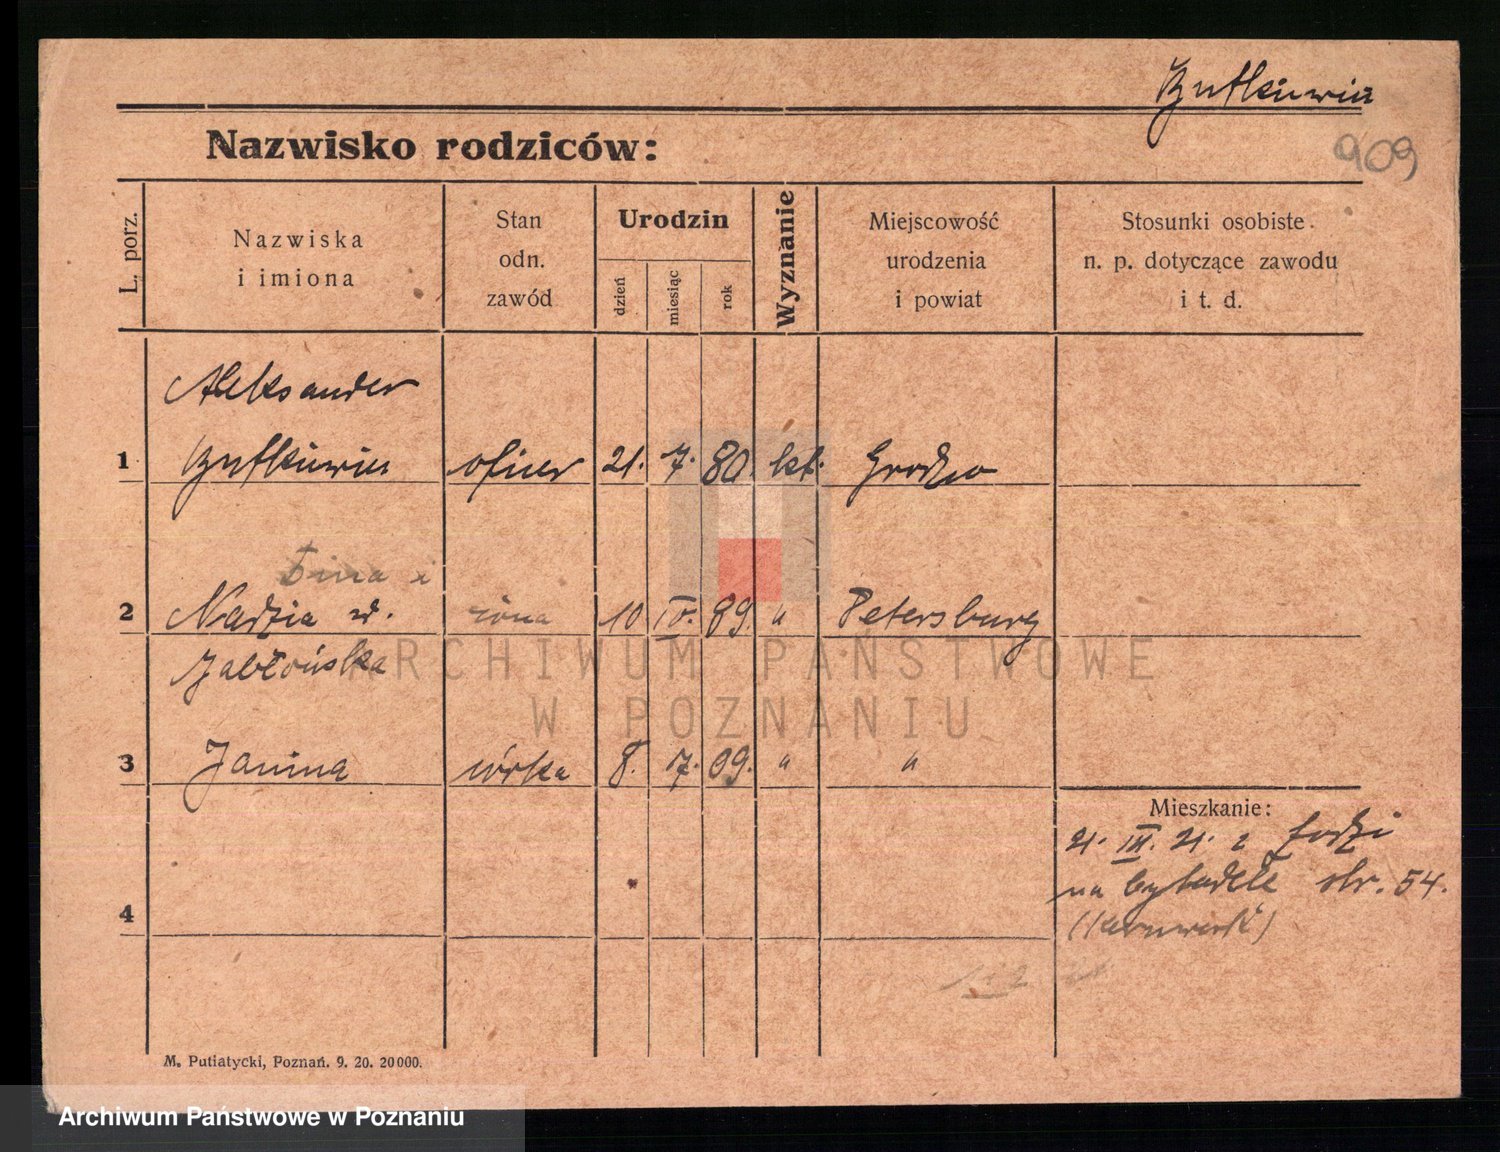 Rutkiewicz
909
Nazwisko rodziców:
L. porz.
Nazwiska
i imiona
Stan
odn.
zawód
Urodzin
dzień
miesiąc
rok
Wyznanie
Miejscowość
urodzenia
i powiat
Stosunki osobiste
n. p. dotyczące zawodu
i t. d.
Aleksander
1 Rutkiewicz oficer 21. 7. 80. kt. Grodno
2 Nadzia z d. żona 10 IV. 89. " Petersburg
Jabłońska
3 Janina córka 8. 7. 09. " "
Mieszkanie:
21. III. 21. z Łodzi
na Cytadelę str. 54.
4
1 + 2
M. Putiatycki, Poznań. 9. 20. 20000.
ARCHIWUM PAŃSTWOWE
W POZNANIU
Archiwum Państwowe w Poznaniu